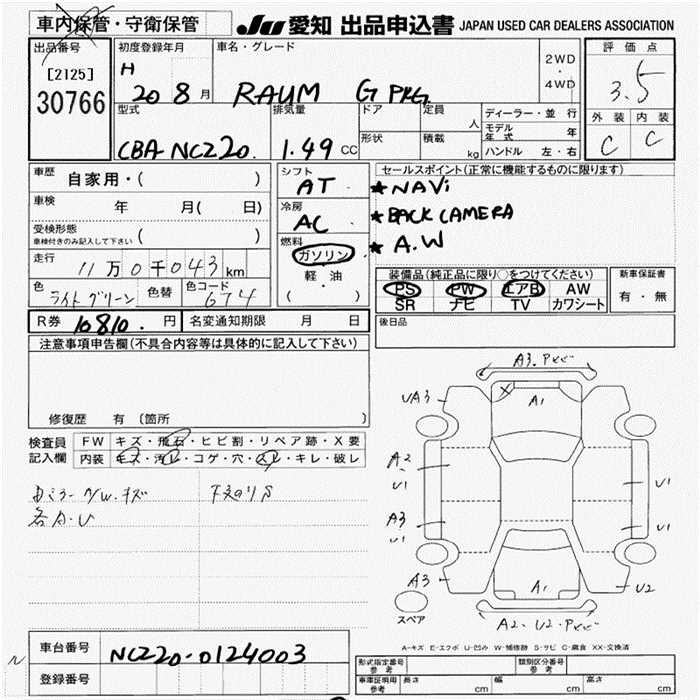 車内保管・守衛保管
JU 愛知 出品申込書 JAPAN USED CAR DEALERS ASSOCIATION
出品番号
[2125]
30766
初度登録年月
H 20 8 月
車名・グレード
RAUM G PKG
2WD
・
4WD
評価点
3.5
外装 内装
C C
型式
CBA-NCZ20.
排気量
1.49 CC
ドア
形状
定員
人
積載
kg
ディーラー・並行
モデル年式 年
ハンドル 左・右
車歴 自家用・( )
車検 年 月( 日)
受検形態
車検付きのみ記入して下さい ( )
走行 11万0千043 km
色 ライトグリーン 色替 色コード 674
R券 10810. 円 名変通知期限 月 日
シフト
AT
冷房
AC
燃料
ガソリン
・
軽・油
・
( )
セールスポイント(正常に機能するものに限ります)
★NAVi
★BACK CAMERA
★A.W
装備品(純正品に限り○をつけてください)
PS PW エアB AW
SR ナビ TV カワシート
新車保証書
有・無
後日品
注意事項申告欄(不具合内容等は具体的に記入して下さい)
修復歴 有〔箇所
検査員記入欄
FW キズ・飛石・ヒビ割・リペア跡・X要
内装 キズ・汚レ・コゲ・穴・スレ・キレ・破レ
各A・U
A3.
UA3
A1
A2
U1
A3
U1
U1
U1
A3
A1
U2
A2.U2.
スペア
A-キズ E-エクボ U-凹み W-補修跡 S-サビ C-腐食 XX-交換済
車台番号 NCZ20-0124003
登録番号
形式指定番号
参考
類別区分番号
参考
車庫証明用
参考
長さ cm 幅 cm 高さ cm